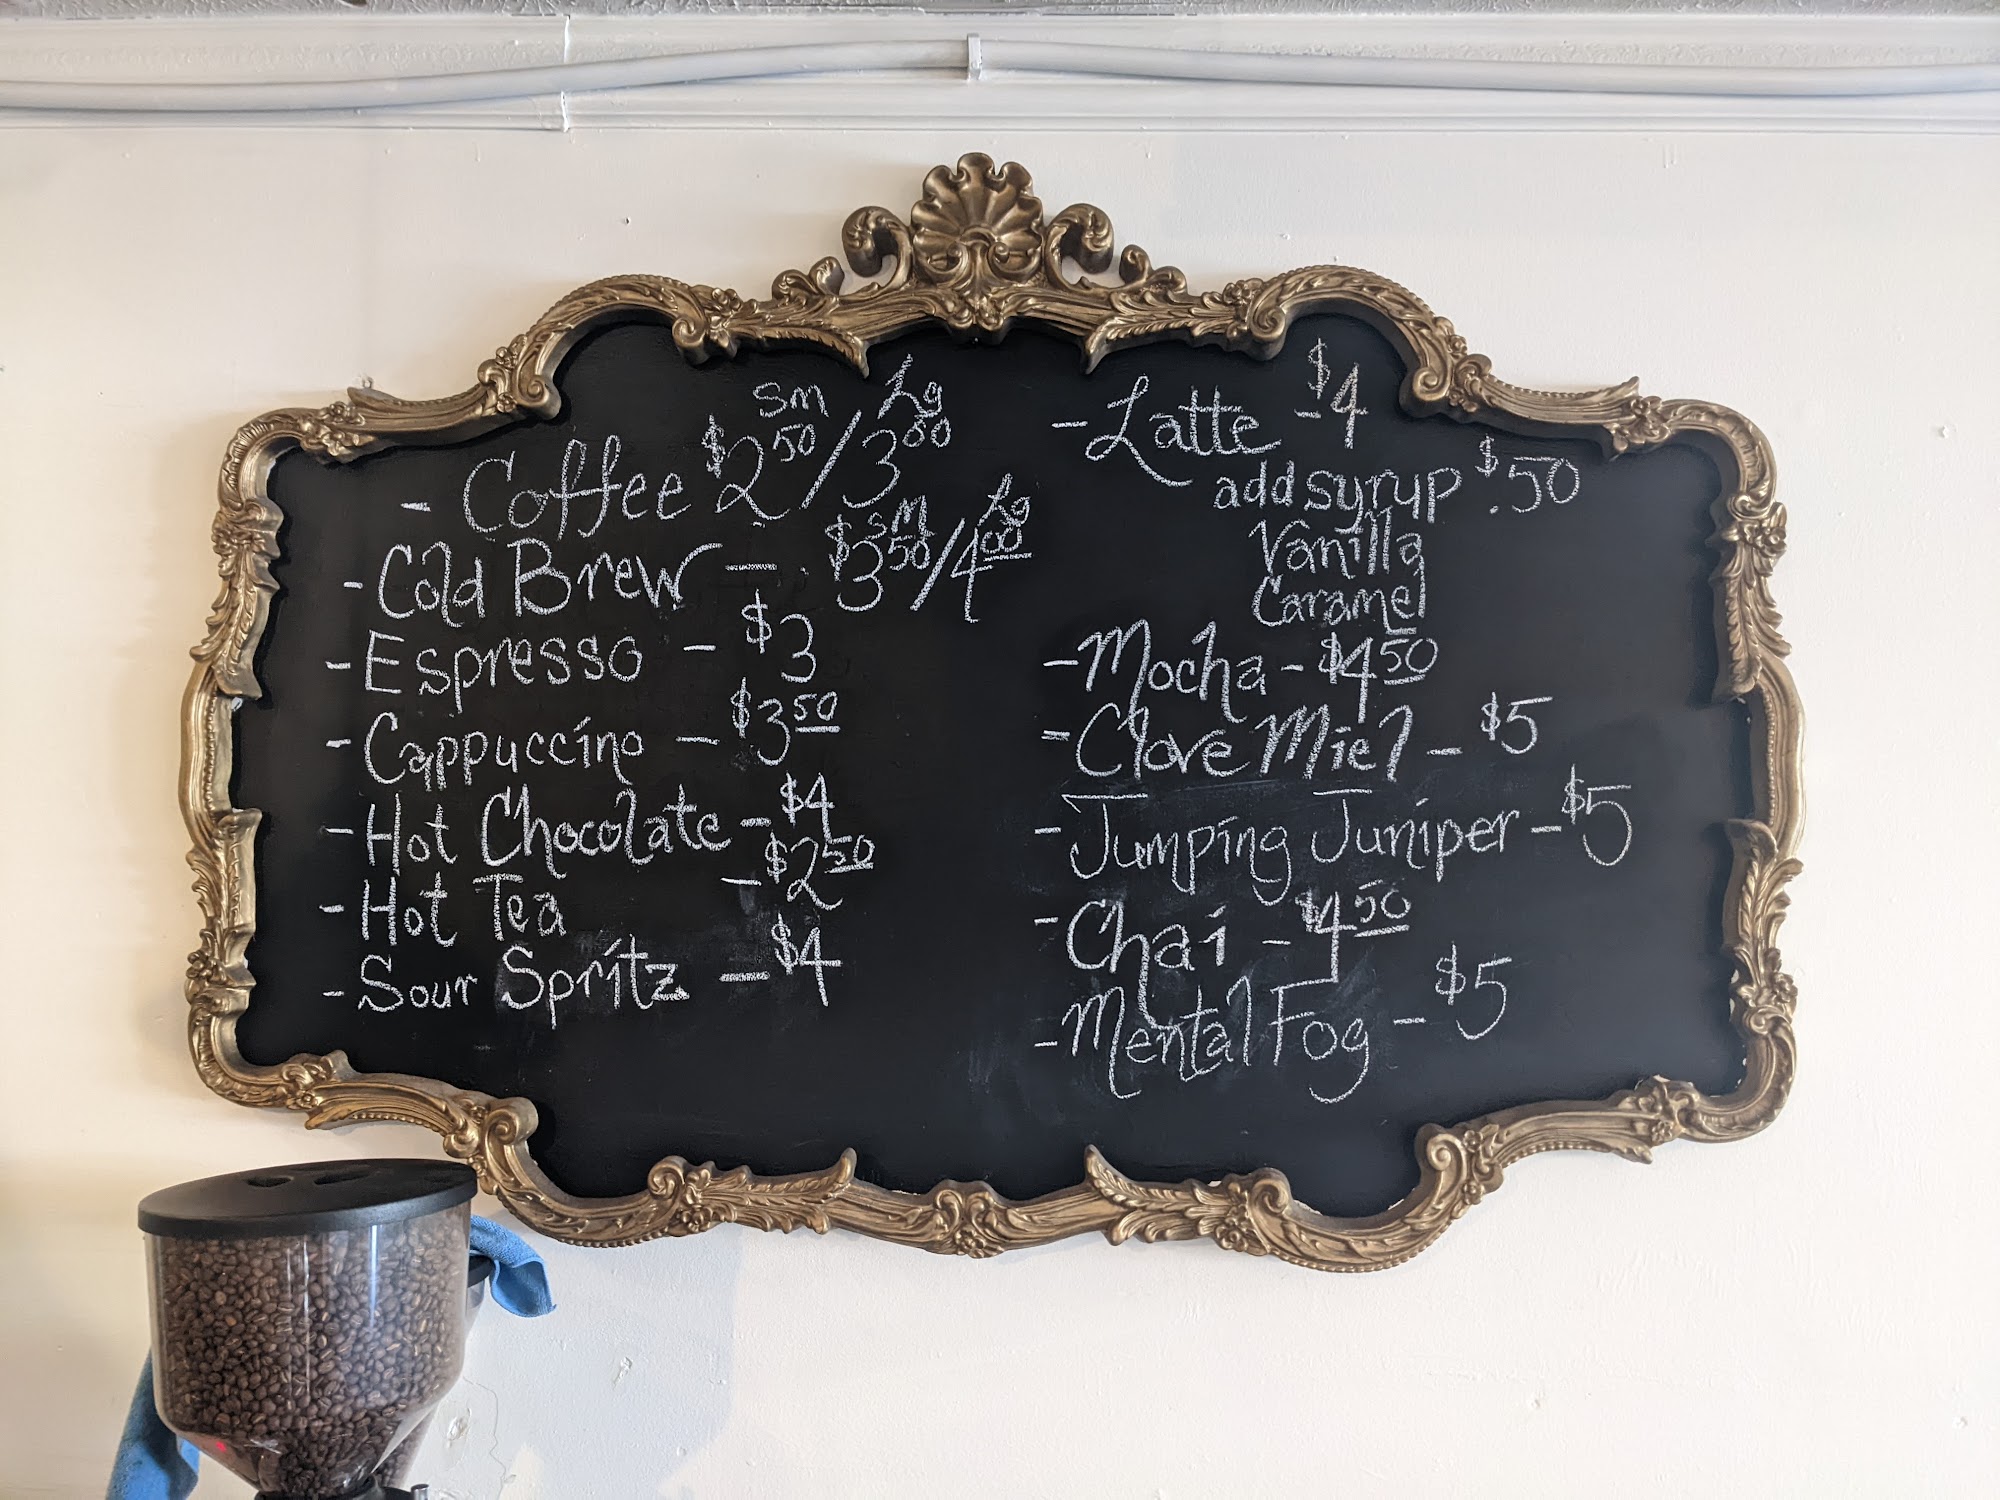 sm Lg
- Coffee $2 50 / 3 00
sm Lg
- Cold Brew — $3 50 / 4 00
- Espresso - $3
- Cappuccino - $3 50
- Hot Chocolate - $4
- Hot Tea - $2 50
- Sour Spritz - $4
- Latte - $4
add syrup $.50
Vanilla
Caramel
- Mocha - $4 50
- Clove Miel - $5
- Jumping Juniper - $5
- Chai - $4 50
- Mental Fog - $5